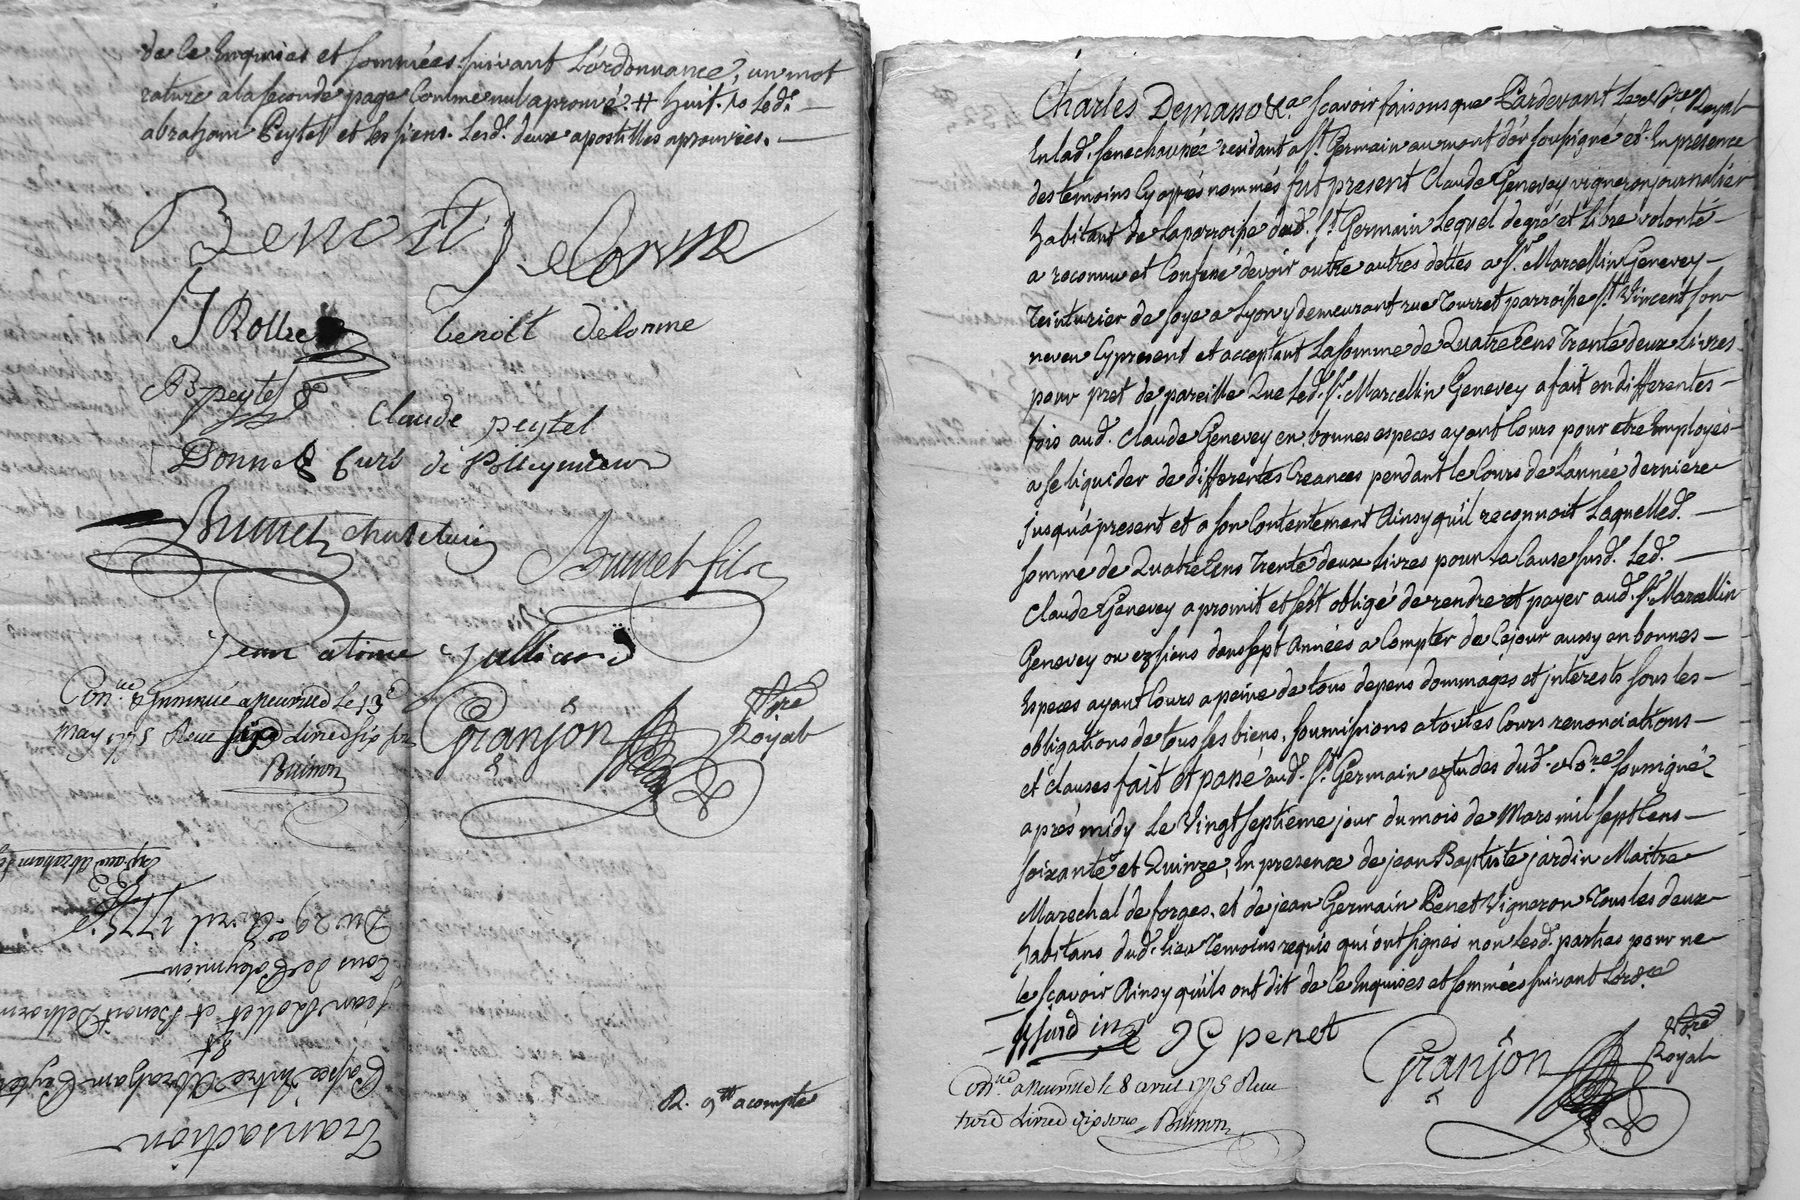 de ce Enquises et sommées suivant L'ordonnance, un mot
raturé a la seconde page comme nul aprouvé. # huit. 10 Led.
abraham Peytel et les siens. Lesd. deux apostilles aprouvées.
Benoit Delorme
J Rollet
benoitt delorme
B peytel
Claude peytel
Donnet Curé de Polleymieux
Brunet chatelain
Brunet fils
Jean
Con.lle a Neuville le 13e
may 1775 Reçu livres six
Brimon
Granjon
Nre
Royal
R. 9tt acompte
Transaction
Passée Entre Abraham Peytel
&
Jean Rollet et Benoit Delhorme
tous de Poleymieu
Du 29e Avril 1775
Exp. au Abraham
Charles Demano &c.a Scavoir faisons que Pardevant Le Nore Royal
En lad. Senechaussée residant a St. Germain au mont d'or soussigné et En presence
des temoins Cy aprés nommés fut present Claude Genevey vigneron journalier
habitant de La parroisse dud. St. Germain Lequel de gré et libre volonté
a reconnu et Confessé devoir outre autres dettes a Sr. Marcellin Genevey
teinturier de soye a Lyon y demeurant rue Tourret parroisse St. Vincent son
neveu Cy present et acceptant La somme de Quatre Cens Trente deux Livres
pour pret de pareille Que Led. Sr. Marcellin Genevey a fait en differentes
fois aud. Claude Genevey en bonnes especes ayant Cours pour etre Employés
a se liquider de differentes Creances pendant le Cours de L'année derniere
jusqu'a present et a son Contentement Ainsy qu'il reconnoit Laquelled.
somme de Quatre Cens Trente deux Livres pour La Cause susd. Led.
Claude Genevey a promit et s'est obligé de rendre et payer aud. Sr. Marcellin
Genevey ou ez siens dans sept Années a Compter de Cejour aussy en bonnes
Especes ayant Cours a peine de tous depens dommages et interests sous les
obligations de tous ses biens, soumissions a toutes Cours renonciations
et clauses fait et passé aud. St. Germain ez etudes dud. Nore soussigné
aprés midy Le Vingt septieme jour du mois de Mars mil sept Cens
soixante et Quinze, En presence de jean Baptiste jardin Maitre
Marechal de forges, et de jean Germain Penet Vigneron Tous les deux
habitans dud. lieu Temoins requis qui ont signés non lesd. parties pour ne
le scavoir Ainsy qu'ils ont dit de ce Enquises et sommées suivant L'ordce
jardin JG penet
Granjon
Nore
Royal
Con.lle a Neuville le 8 avril 1775 Reçu
trois Livres dix sous Brimon